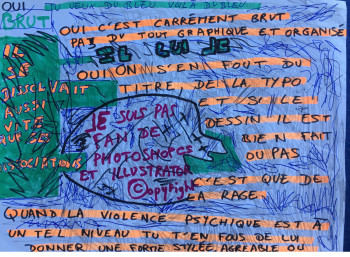 OUI
TU VEUX DU BLEU VOILÀ DU BLEU
BRUT
OUI C'EST CARRÉMENT BRUT
PAS DU TOUT GRAPHIQUE ET ORGANISÉ
IL
SE
DISSOLVAIT
AUSSI
VITE
QUE SES
ASSOCIATIONS
OUI ON S'EN FOUT DU
TITRE DE LA TYPO
ET SI LE
DESSIN IL EST
BIEN FAIT
OU PAS
JE SUIS PAS
FAN DE
PHOTOSHOPCS
ET ILLUSTRATOR
©opyright
C'EST QUE DE
LA RAGE
QUAND LA VIOLENCE PSYCHIQUE EST À
UN TEL NIVEAU TU T'EN FOUS DE LUI
DONNER UNE FORME STYLÉE AGRÉABLE OU